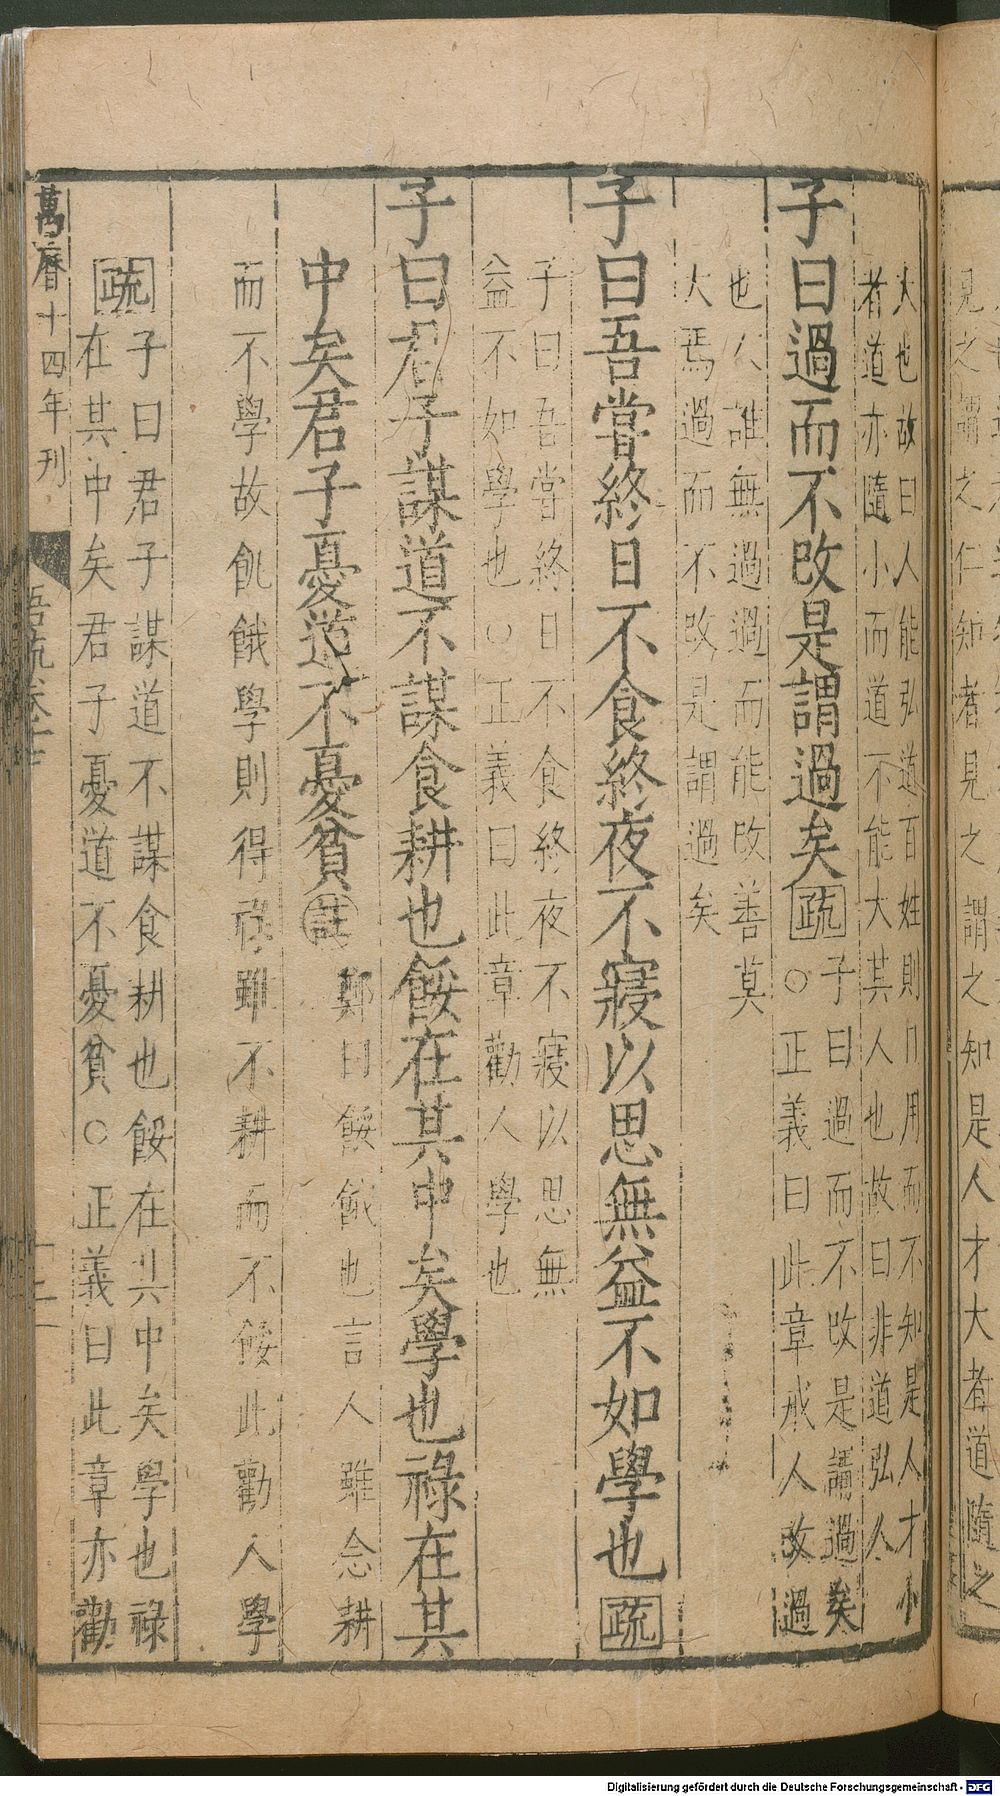 見之謂之仁知者見之謂之知是人才大者道隨之
大也故曰人能弘道百姓則日用而不知是人才小
者道亦隨小而道不能大其人也故曰非道弘人
子曰過而不改是謂過矣疏
子曰過而不改是謂過矣
○正義曰此章戒人改過
也人誰無過過而能改善莫
大焉過而不改是謂過矣
子曰吾嘗終日不食終夜不寢以思無益不如學也疏
子曰吾嘗終日不食終夜不寢以思無
益不如學也○正義曰此章勸人學也
子曰君子謀道不謀食耕也餒在其中矣學也祿在其
中矣君子憂道不憂貧註
鄭曰餒餓也言人雖念耕
而不學故飢餓學則得祿雖不耕而不餒此勸人學
疏子曰君子謀道不謀食耕也餒在其中矣學也祿
在其中矣君子憂道不憂貧○正義曰此章亦勸
萬曆十四年刊
語疏卷十五
Digitalisierung gefördert durch die Deutsche Forschungsgemeinschaft - DFG